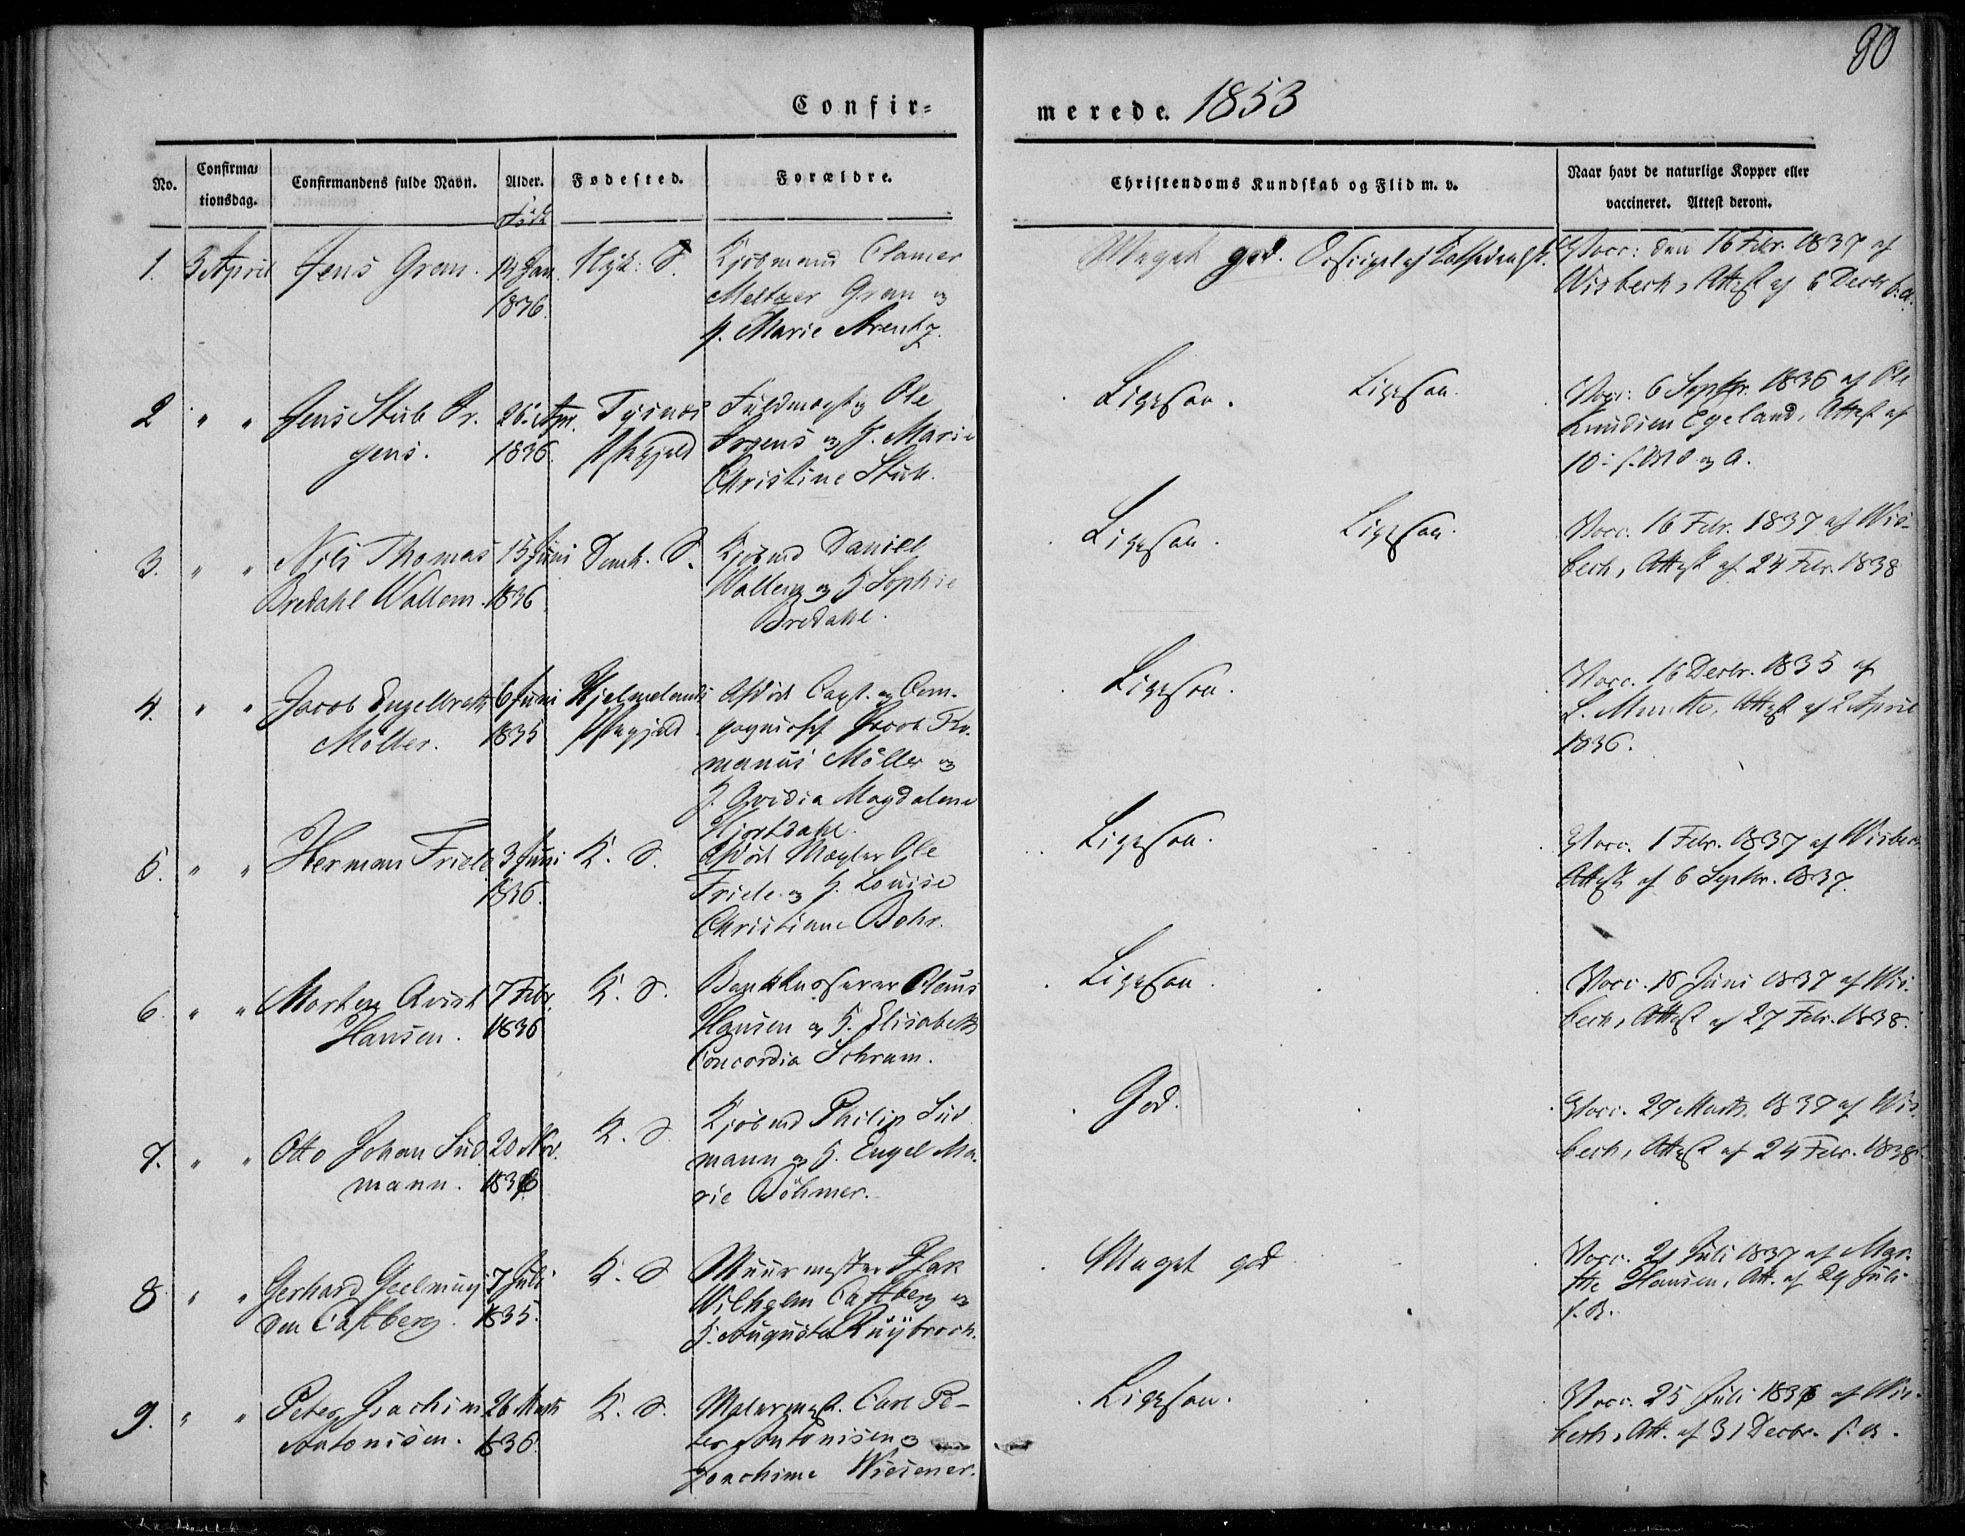 80
Confir=
merede. 1853
No.
Confirma=
tionsdag.
Confirmandens fulde Navn.
Alder.
Fødested.
Forældre.
Christendoms Kundskab og Flid m. v.
Naar havt de naturlige Kopper eller
vaccineret. Attest derom.
1. 3 April Jens Gran. 14 Jan.
1836.
Nyk. S.
Kjøbmand Clamer
Meltzer Gran og
H. Marie Arentz.
Meget god.
Vacc: den 16 Febr. 1837 af
Wisbech, Attest af 6 Decbr s.A.
2 " " Jens Stub Ir-
gens.
26. Apr.
1836.
Tysnes
Præstegjeld
Fuldmægtig Ole
Irgens og H. Marie
Christine Stub.
Ligesaa. Ligesaa.
Vacc: 6 Septbr. 1836 af Ole
Knudsen Egeland, Attest af
10- s. Md og A.
3. " " Nils Thomas
Bredahl Wallem.
15 Juni
1836
Domk. S.
Kjøbmd Daniel
Wallem og H. Sophie
Bredahl.
Ligesaa. Ligesaa.
Vacc. 16 Febr. 1837 af Wis-
bech, Attest af 24 Febr. 1838
4. " " Jacob Engelbreth
Möller.
6 Juni
1835
Hjelmelands
Præstegjeld
Afdøde Capt. og Com-
pagnichef Jacob
Möller og
H. Ovidia Magdalena
Hjortdahl.
Ligesaa.
Vacc. 16 Decbr. 1835 af
L. Munthe, Attest af 2 April
1836.
5. " " Herman Friele
3 Juni
1836.
K. S.
Afdøde Mægler Ole
Friele og H. Louise
Christiane Bohr.
Ligesaa.
Vacc. 1 Febr. 1837 af Wisbech
Attest af 6 Septbr. 1837.
6. " " Morten Qvist
Hansen.
7 Febr.
1836
K. S.
Bankkasserer Claus
Hansen og H. Elisabeth
Concordia Schram.
Ligesaa.
Vacc. 18 Juni 1837 af Wis-
bech, Attest af 27 Febr. 1838.
7. " " Otto Johan Sud
mann.
20 Nov.
1836
K. S.
Kjøbmd Philip Sud
mann og H. Engel Ma-
rie Böhmer.
God.
Vacc. 27 Marts 1837 af Wis
bech, Attest af 24 Febr. 1838.
8 " " Gerhard Geelmuy
den Castberg.
7 Juli
1835.
K. S
Muurmester
Wilhelm Castberg og
H. Augusta Ruybroch.
Meget god
Vacc. 21 Juli 1837 af Mar-
the Hansen, Att. af 29 Juli
s. A.
9. " " Peter Joachim
Antonisen.
26 Marts
1836.
K. S.
Malermest. Carl Pe-
ter Antonisen og
Joachime Wiesener.
Ligesaa.
Vacc. 25 Juli 1836 af Wis-
bech, Att. af 31 Decbr. s. A.